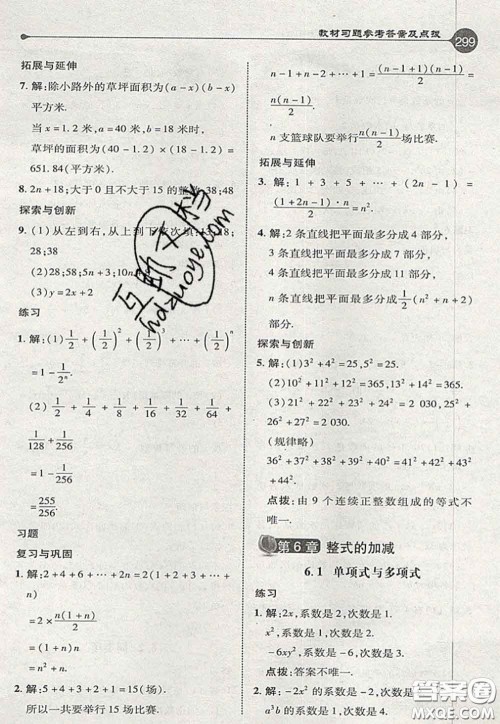 教材习题参考答案及点拨
299
拓展与延伸
7. 解:除小路外的草坪面积为(a-x)(b-x)
平方米.
当 x=1.2 米,a=40 米,b=18 米时,
草坪的面积为(40-1.2)×(18-1.2)=
651.84(平方米).
8. 2n+18;大于 0 且不大于 15 的整数;38;48
探索与创新
9. (1)从左到右,从上到下依次填:
28;38
(2)
(3)y=2x+2
练习
1. 解:(1)1/2+(1/2)²+(1/2)³+…+(1/2)ⁿ
=1-1/2ⁿ.
(2)1/2+1/4+1/8+1/16+1/32+1/64+
1/128+1/256
=1-1/256
=255/256.
习题
复习与巩固
1. 解:2+4+6+…+2n
=2(1+2+3+…+n)
=2×n(n+1)/2
=n(n+1)
=n²+n.
2. 解:5+4+3+2+1=15(场).
所以一共要举行 15 场比赛.
n-1+n-2+…+1=(n-1+1)(n-1)/2
=n(n-1)/2.
n 支篮球队要举行n(n-1)/2场比赛.
拓展与延伸
3. 解:1+3+5+…+(2n-1)=
(1+2n-1)·n/2=n².
4. 解:2 条直线把平面最多分成 4 部分,
3 条直线把平面最多分成 7 部分,
4 条直线把平面最多分成 11 部分,
n 条直线把平面最多分成(n²/2+n/2+1)部
分.
探索与创新
5. 解:(1)3²+4²=25,5²=25.
(2)10²+11²+12²=365,13²+14²=365.
(3)21²+22²+23²+24²=2 030,25²+
26²+27²=2 030.
(规律略)
36²+37²+38²+39²+40²=41²+42²+
43²+44².
点拨:由 9 个连续正整数组成的等式不
唯一.
第 6 章 整式的加减
6.1 单项式与多项式
练习
1. 解:2x,系数是 2,次数是 1.
x²,系数是 1,次数是 2.
-6xy²,系数是-6,次数是 3.
点拨:答案不唯一.
2. 解:-2x²的系数是-2,次数是 2.
互助文档
hdzuoye.com
答案圈
MXQE.COM